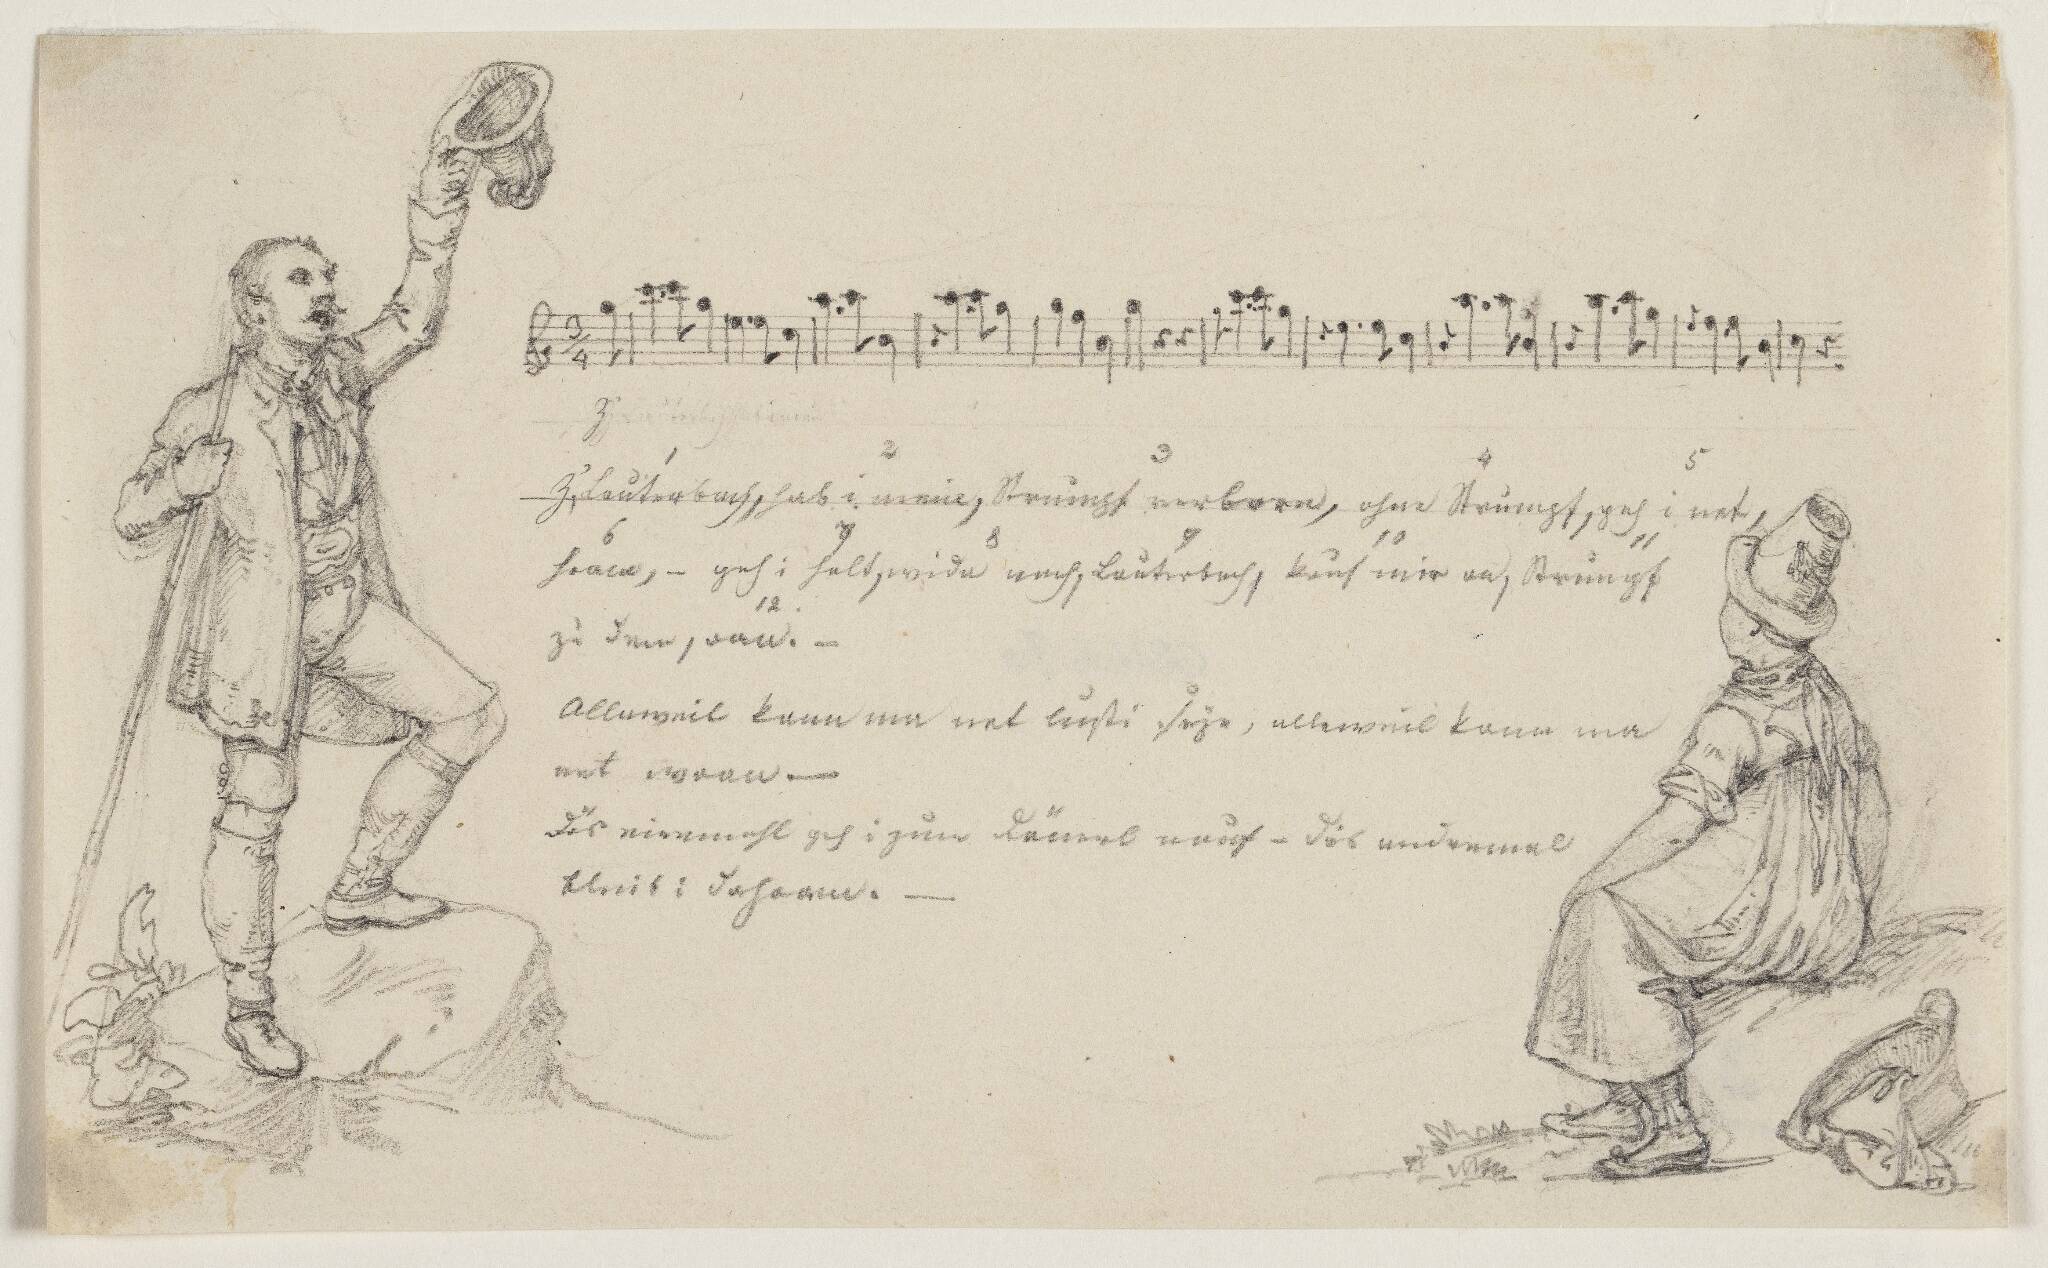 3/4
Z'
1 2 3 4 5
Z'Lauterbach, hab i mein, Strumpf verlorn, ohne Strumpf, geh i net,
6 7 8 9 10 11
hoam, – geh i halt, wida nach, Lauterbach, kauf mir an, Strumpf
12
zu dem, oan. –
Alleweil kann ma net lusti seyn, alleweil kann ma
net woan —
Dös einemahl geh i zum nauf – dös andremal
bleib i dahoam. —